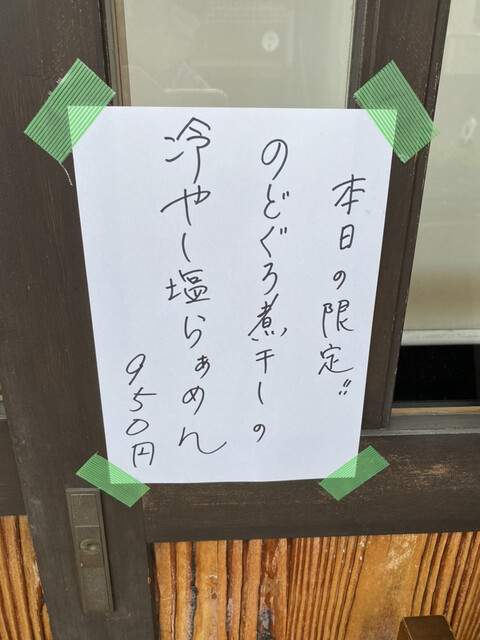 本日の限定!!
のどぐろ煮干しの
冷やし塩らぁめん
950円